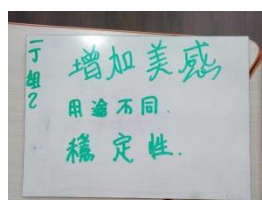 一丁組2
增加美感
用途不同.
穩定性.